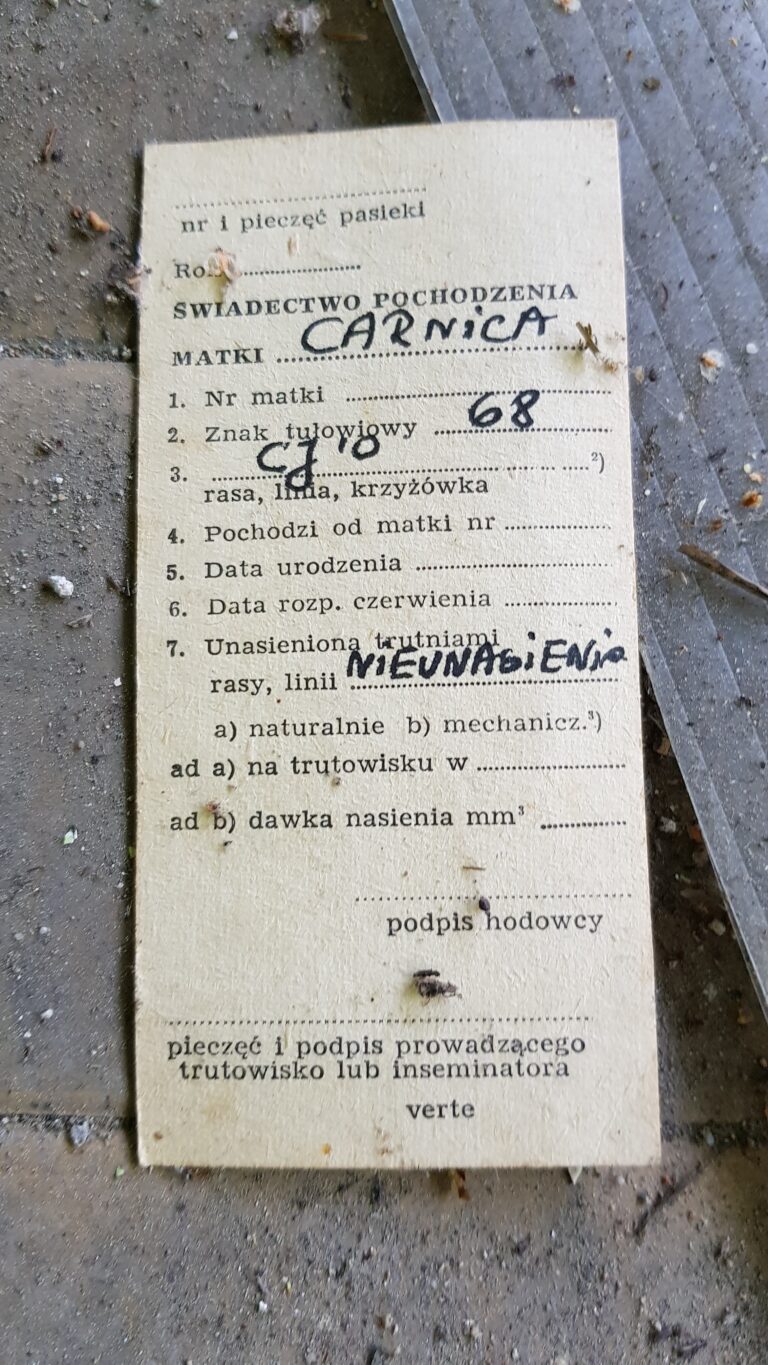 nr i pieczęć pasieki
Ro
ŚWIADECTWO POCHODZENIA
MATKI CARNiCA
1. Nr matki
2. Znak tułowiowy 68
3. CJ'O ²)
rasa, linia, krzyżówka
4. Pochodzi od matki nr
5. Data urodzenia
6. Data rozp. czerwienia
7. Unasieniona trutniami
rasy, linii NiEUNASiENiO
a) naturalnie b) mechanicz.³)
ad a) na trutowisku w
ad b) dawka nasienia mm³
podpis hodowcy
pieczęć i podpis prowadzącego
trutowisko lub inseminatora
verte